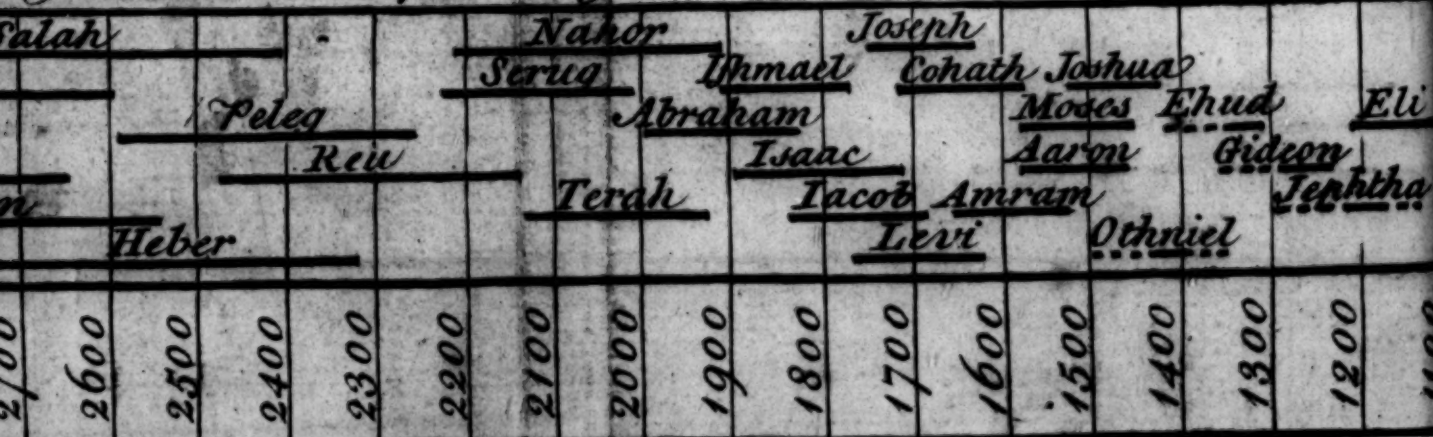 Salah Nahor Joseph
Serug Ishmael Cohath Joshua
Peleg Abraham Moses Ehud Eli
Reu Isaac Aaron Gideon
Terah Iacob Amram Jephtha
Heber Levi Othniel
2600 2500 2400 2300 2200 2100 2000 1900 1800 1700 1600 1500 1400 1300 1200